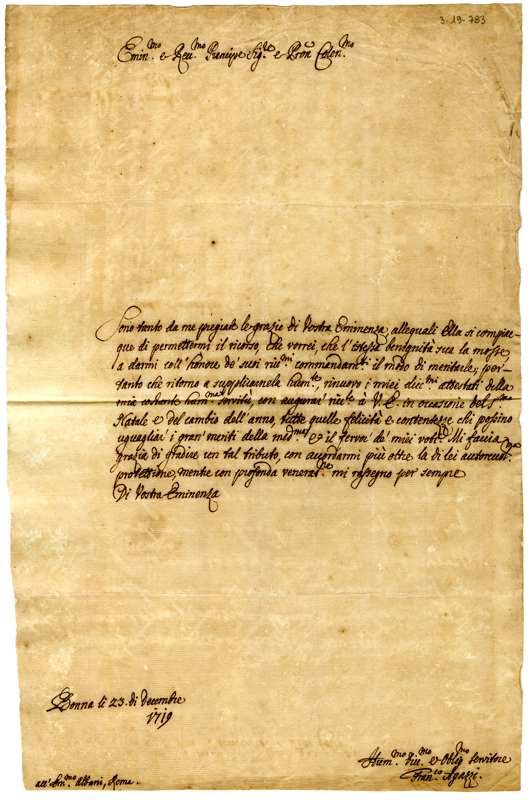 3-19-783
Emin.mo e Reu.mo Principe Sig.re e Pron Colen.mo
Sono tanto da me pregiate le grazie di Vostra Eminenza, allequali Ella si compiac-
que di permettermi il ricorso, che vorrei, che l'istessa benignità sua la mosse
a darmi coll'honore de' suoi riu.mi commandam.ti il modo di meritale; per-
tanto che ritorno a supplicarnela hum.te, rinuovo i miei attestati della
mia hum.ma servitù, con augurar' riu.te à V. E. in occasione del
Natale e del cambio dell'anno, tutte quelle felicità e contentezze che possino
uguagliar' i gran' meriti della med.ma et il fervor de' miei voti. Mi faccia
grazia di gradire un tal tributo, con accordarmi più oltre la di lei autoreuol.ma
protettione, mentre con profonda venerat.ne mi rassegno per sempre
Di Vostra Eminenza
Bonna li 23. di Decembre
1719
Hum.mo Diu.mo et Oblig.mo Servitore
Fran.co Agazzi.
all'Em.mo Albani, Roma.